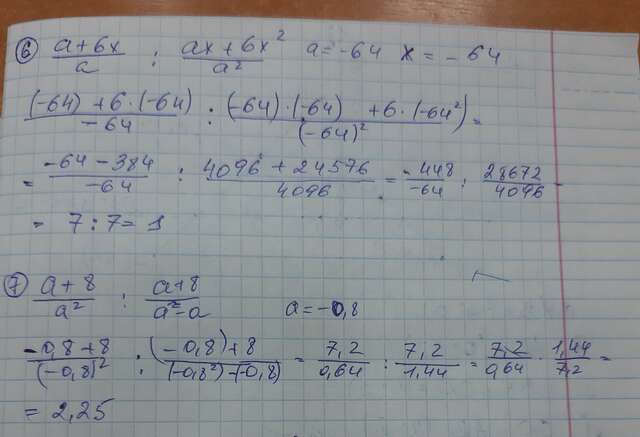 6 (a+6x)/a : (ax+6x²)/a² a=-64 x=-64
((-64)+6·(-64))/(-64) : ((-64)·(-64)+6·(-64²))/(-64)² =
= (-64-384)/(-64) : (4096+24576)/4096 = (-448)/(-64) : 28672/4096 =
= 7:7=1
7 (a+8)/a² : (a+8)/(a²-a) a=-0,8
(-0,8+8)/(-0,8)² : ((-0,8)+8)/((-0,8²)-(-0,8)) = 7,2/0,64 : 7,2/1,44 = 7,2/0,64 · 1,44/7,2 =
= 2,25